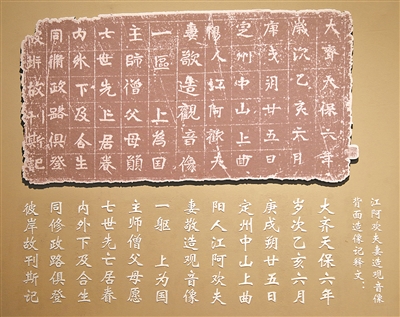 大齊天保六年
歲次乙亥六月
庚戌朔廿五日
定州中山上曲
陽人江阿歡夫
妻敬造觀音像
一區 上為国
主師僧父母願
七世先亡居眷
内外下及合生
同脩政路俱登
彼岸故刊斯記
江阿欢夫妻造观音像
背面造像记释文：
大齐天保六年
岁次乙亥六月
庚戌朔廿五日
定州中山上曲
阳人江阿欢夫
妻敬造观音像
一躯 上为国
主师僧父母愿
七世先亡居眷
内外下及合生
同修政路俱登
彼岸故刊斯记